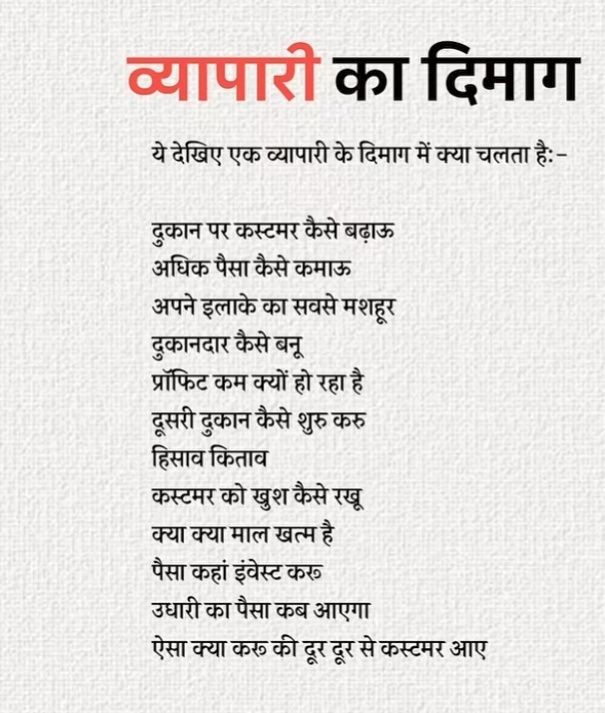 व्यापारी का दिमाग
ये देखिए एक व्यापारी के दिमाग में क्या चलता है:-
दुकान पर कस्टमर कैसे बढ़ाऊ
अधिक पैसा कैसे कमाऊ
अपने इलाके का सवसे मशहूर
दुकानदार कैसे बनू
प्रॉफिट कम क्यों हो रहा है
दूसरी दुकान कैसे शुरु करु
हिसाव किताव
कस्टमर को खुश कैसे रखू
क्या क्या माल खत्म है
पैसा कहां इंवेस्ट करू
उधारी का पैसा कब आएगा
ऐसा क्या करू की दूर दूर से कस्टमर आए